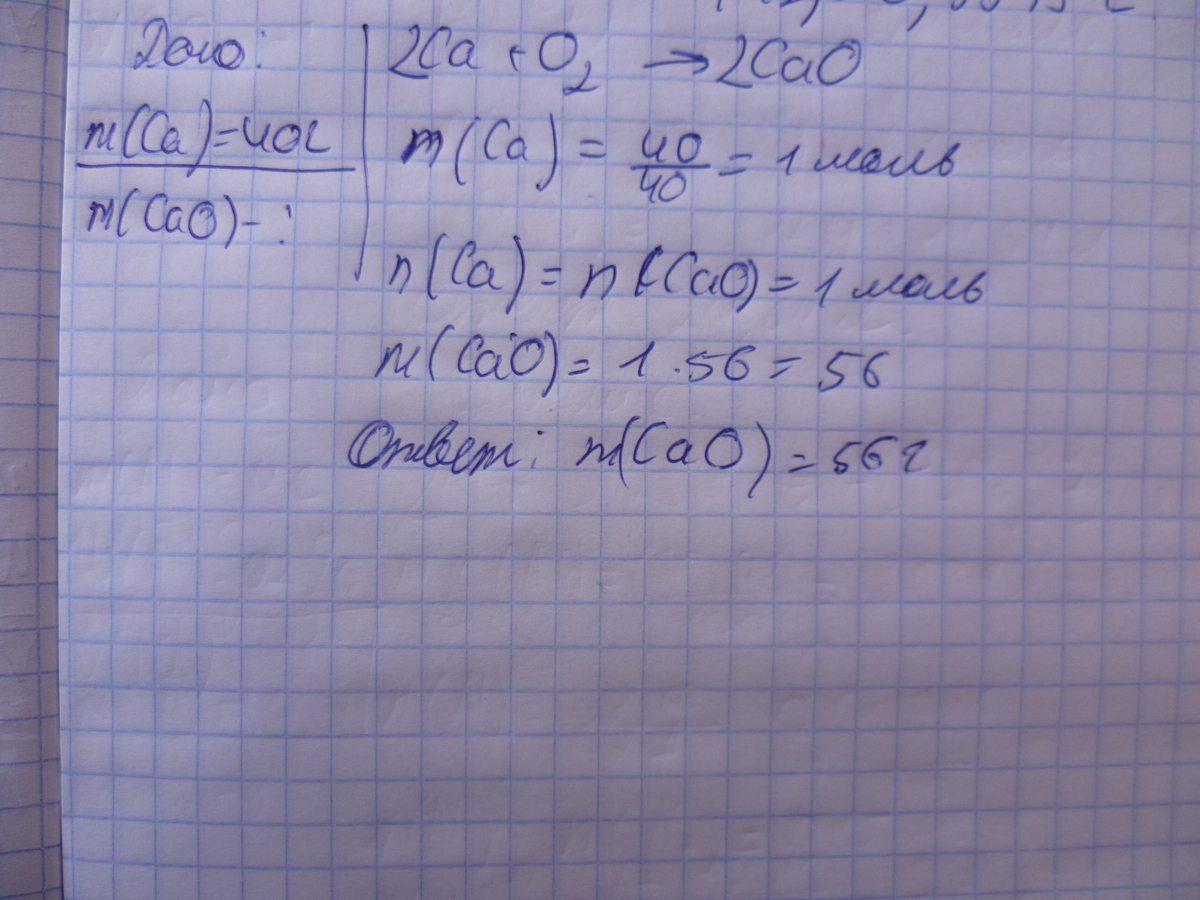 Дано:
m(Ca)=40г
m(CaO)-:
2Ca+O2 → 2CaO
m(Ca) = 40/40 = 1 моль
n(Ca) = n(CaO) = 1 моль
m(CaO) = 1 · 56 = 56
Ответ: m(CaO) = 56 г